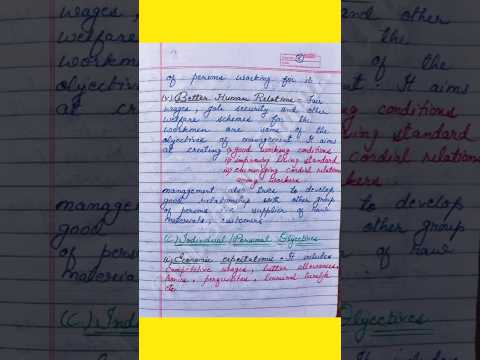 of persons working for it.
(v) Better Human Relations - Fair
wages, job security and other
welfare schemes for the
workmen are some of the
objectives of management. It aims
at creating good working conditions
improving living standard
cordial relations
among workers
management also tries to develop
good relationship with other group
of persons i.e. supplier of raw
materials, customers
(C) Individual/Personal Objectives
(i) Economic expectations - It includes
Competitive wages, better allowances,
bonus, perquisites, terminal benefits
etc